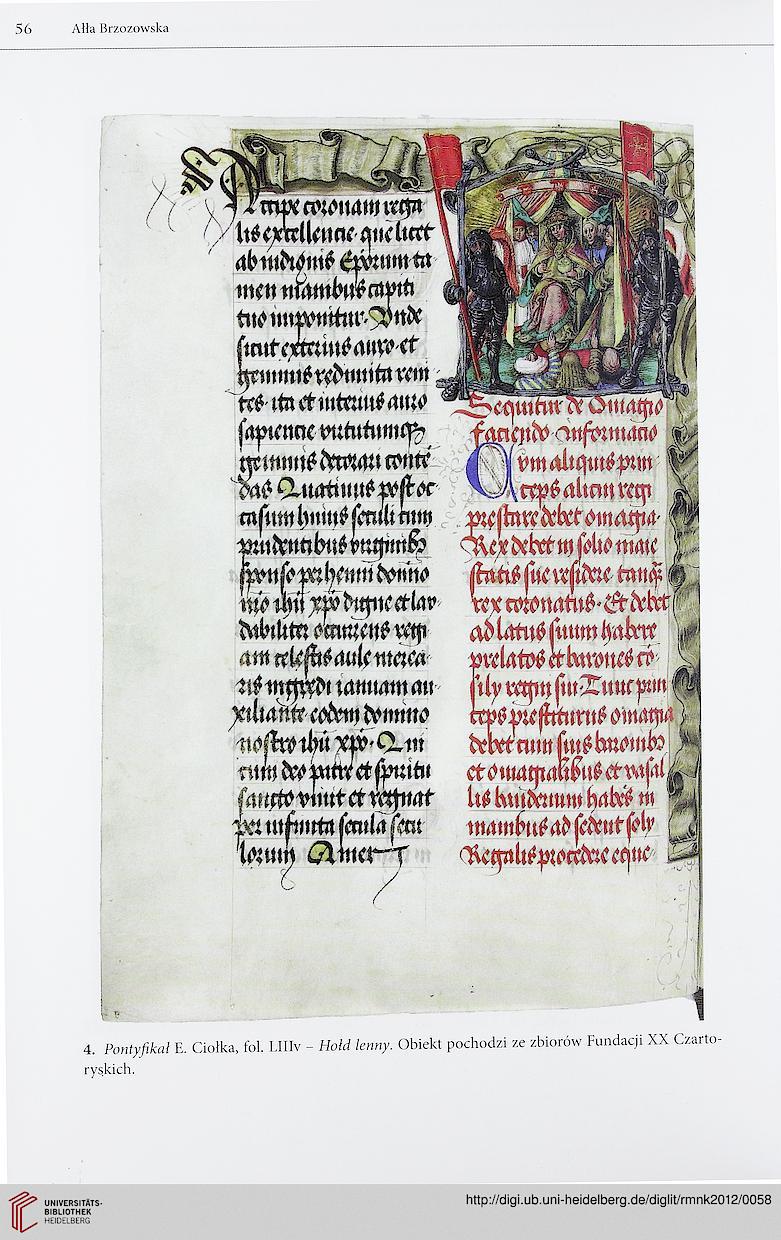 56 Ałła Brzozowska
Accipe coronam rega
lis excellencie que licet
ab indignis Eporum ta
men manibus capiti
tuo imponitur. Vnde
sicut exterius auro et
gemmis redimita reni
tes ita et interius auro
sapiencie virtutumqz
gemmis decorari conte
das Quatinus post oc
casum huius seculi cum
prudentibus virginibz
sponso perhenni domino
nro ihu xpo digne et lau
dabiliter occurrens regi
am celestis aule merea
ris ingredi ianuam au
xiliante eodem domino
nostro ihu xpo. Qui
cum deo patre et spiritu
sancto viuit et regnat
per infinita secula secu
lorum Amen
Sequitur de Omagio
faciendo informacio
Qvm aliquis prin
ceps alicui regi
prestare debet omagia
Rex debet in solio maie
statis sue residere tanqz
rex coronatus. Et debet
ad latus suum habere
prelatos et barones co
sily regni sui. Tunc prin
ceps prestiturus omagia
debet cum suis baronibz
et omagialibus et vasal
lis banderium habes in
manibus ad sedem soly
Regalis procedere eque
4. Pontyfikał E. Ciołka, fol. LIIIv – Hołd lenny. Obiekt pochodzi ze zbiorów Fundacji XX Czarto-
ryskich.
UNIVERSITÄTS-
BIBLIOTHEK
HEIDELBERG
http://digi.ub.uni-heidelberg.de/diglit/rmnk2012/0058